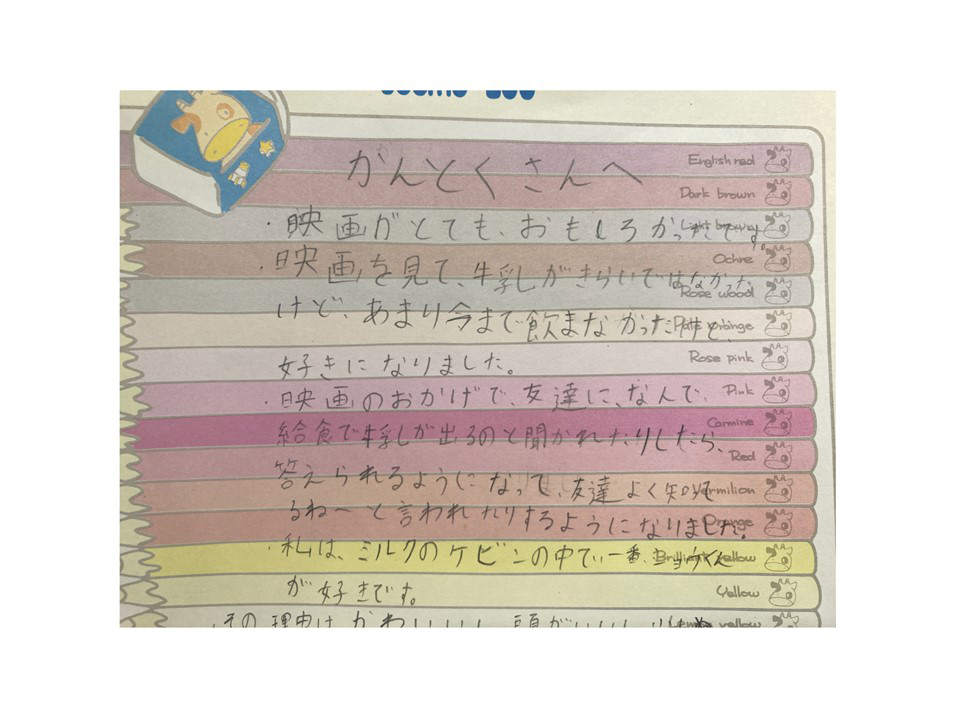 かんとくさんへ
English red
Dark brown
・映画がとても、おもしろかったです。
Light brown
Ochre
・映画を見て、牛乳がきらいではなかった
Rose wood
けど、あまり今まで飲まなかったけど、
好きになりました。
Rose pink
・映画のおかげで、友達に、なんで、
Pink
Carmine
給食で牛乳しが出るのと聞かれたりしたら、
Red
答えられるようになって、友達よく知って
Vermilion
るね〜と言われたりするようになりました。
Orange
・私は、ミルクのケビンの中で、一番
Brilliant yellow
が好きです。
Yellow
その理由は、かわいいし、頭がいいし
yellow